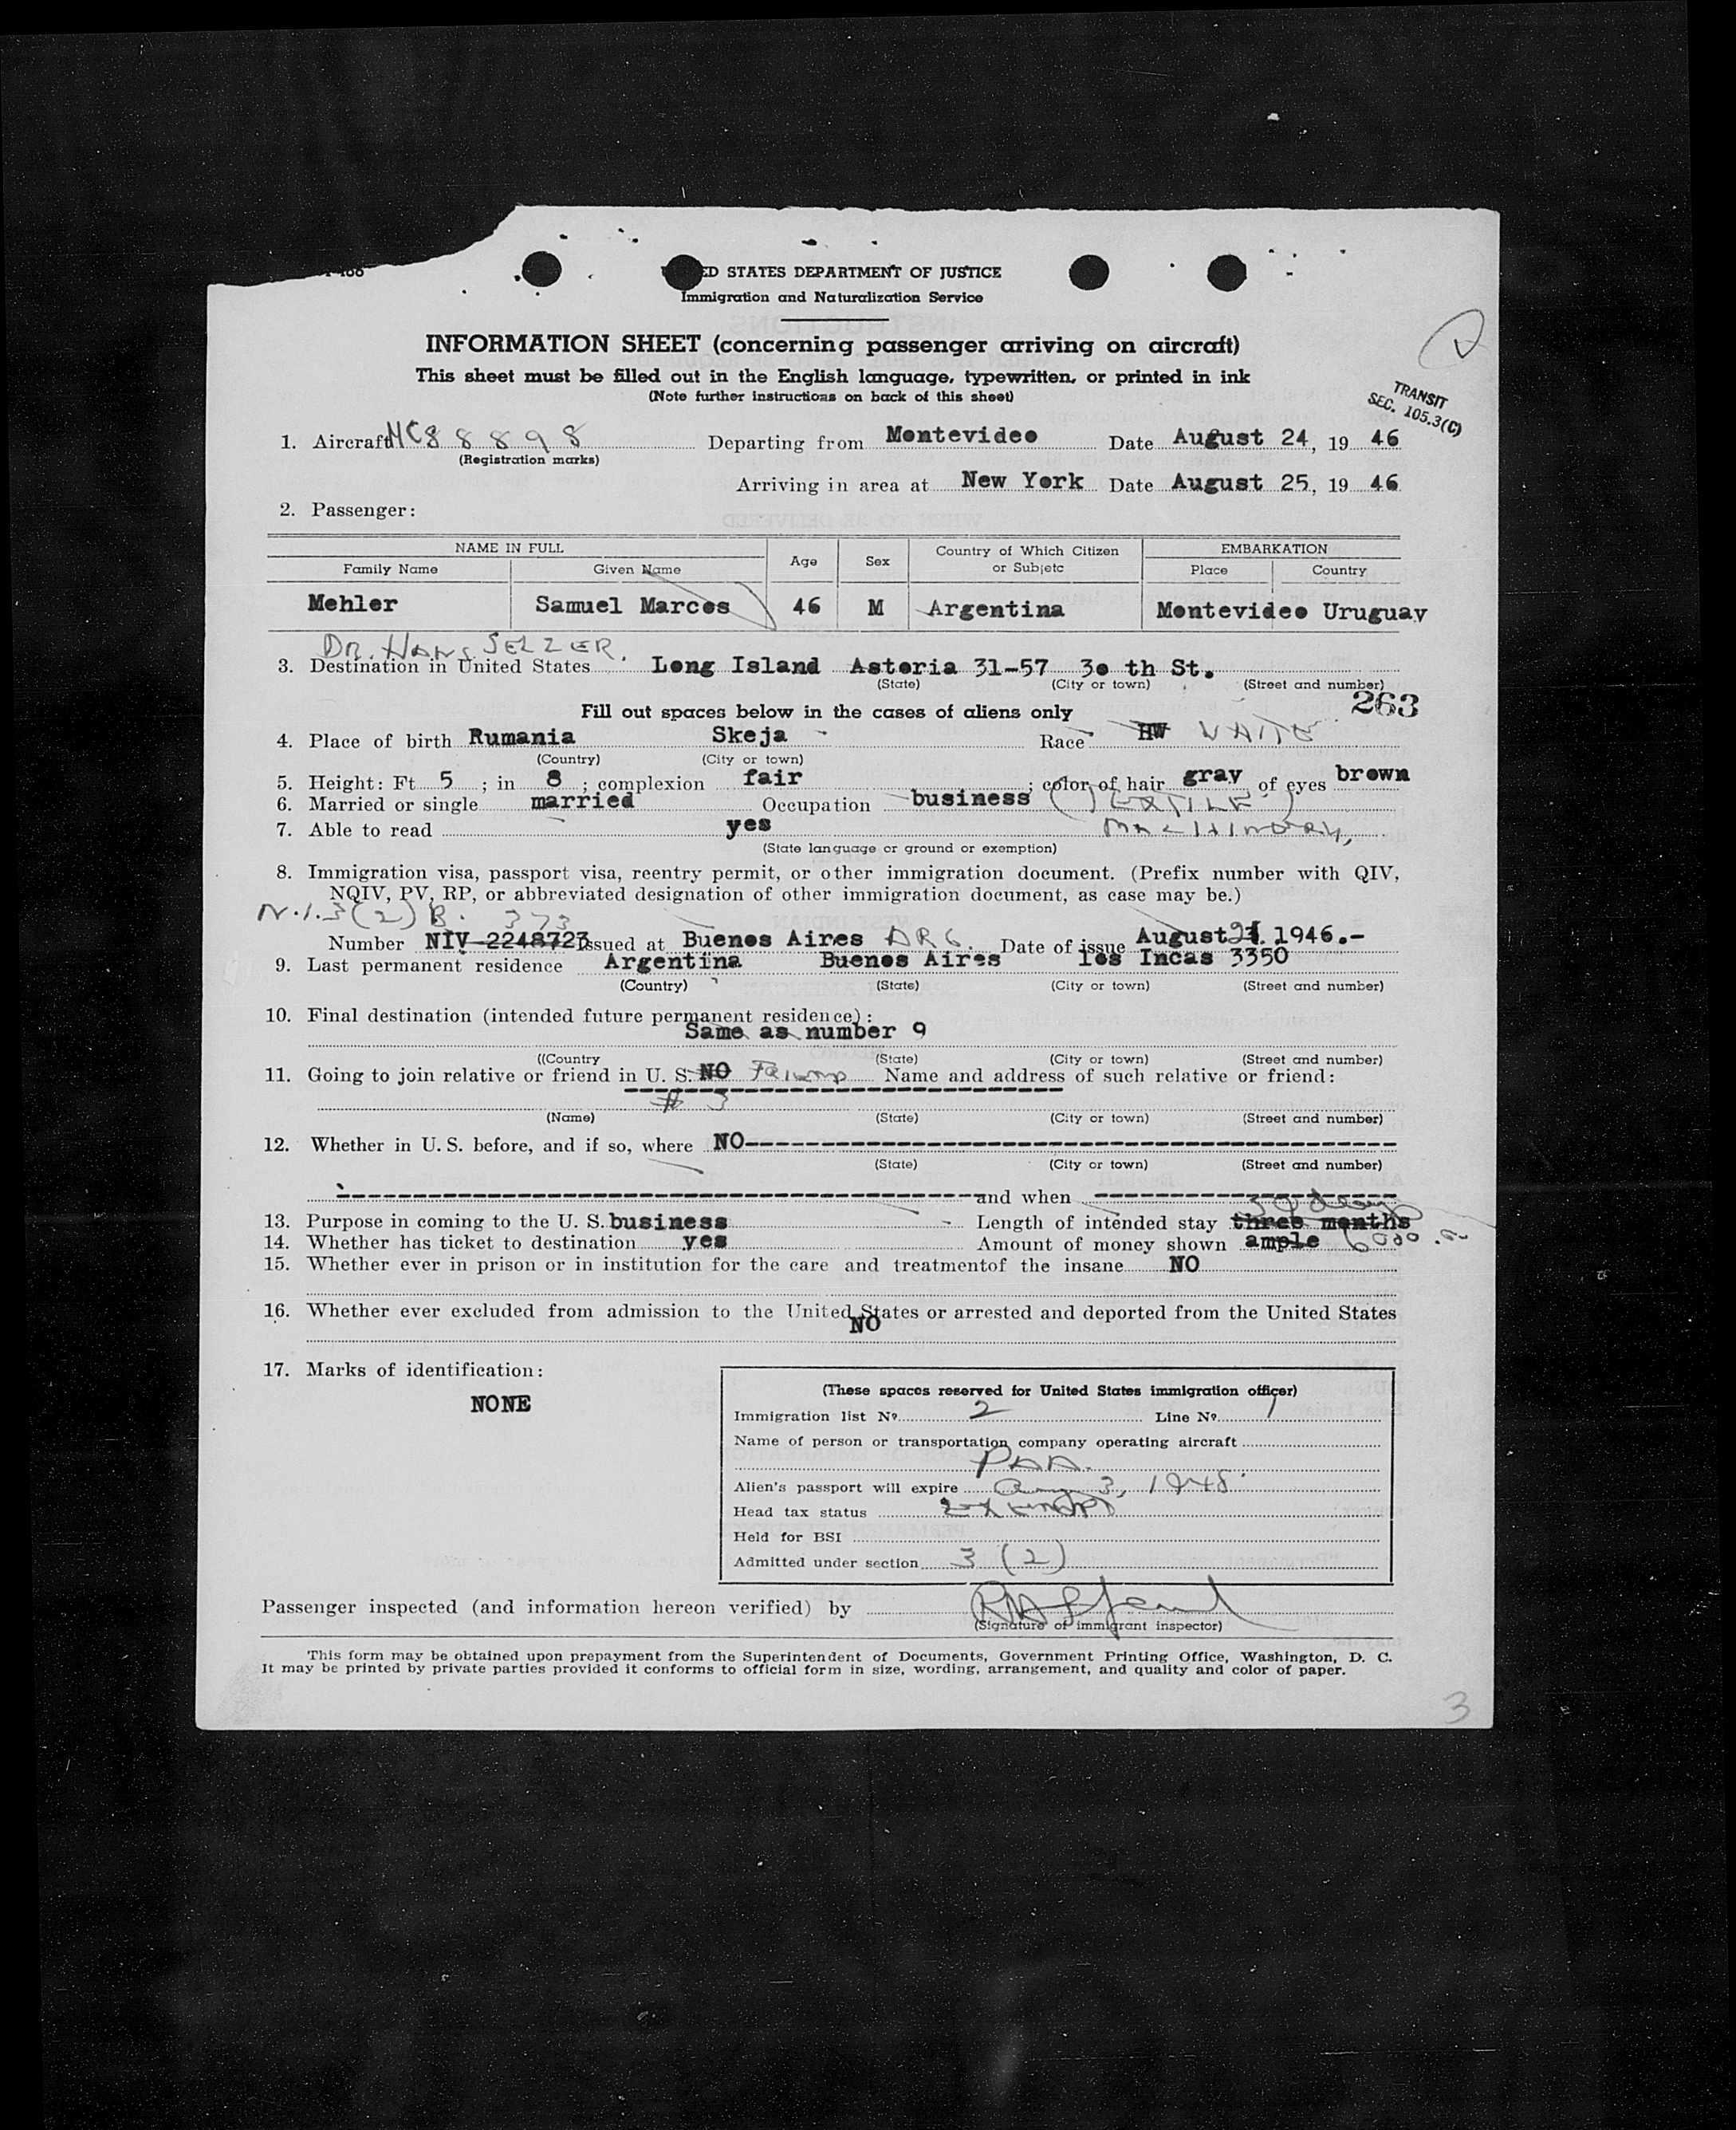 ED STATES DEPARTMENT OF JUSTICE
Immigration and Naturalization Service
INFORMATION SHEET (concerning passenger arriving on aircraft)
This sheet must be filled out in the English language, typewritten, or printed in ink
(Note further instructions on back of this sheet)
TRANSIT
SEC. 105.3(C)
1. Aircraft NC88898 Departing from Montevideo Date August 24, 19 46
(Registration marks)
Arriving in area at New York Date August 25, 19 46
2. Passenger:
NAME IN FULL Age Sex Country of Which Citizen or Subjetc EMBARKATION
Family Name Given Name Place Country
Mehler Samuel Marcos 46 M Argentina Montevideo Uruguay
DR. HANS SELZER.
3. Destination in United States Long Island Astoria 31-57 30 th St.
(State) (City or town) (Street and number)
263
Fill out spaces below in the cases of aliens only
4. Place of birth Rumania Skeja Race HW WHITE
(Country) (City or town)
5. Height: Ft 5 ; in 8 ; complexion fair ; color of hair gray of eyes brown
6. Married or single married Occupation business (TEXTILE)
7. Able to read yes MACHINERY,
(State language or ground or exemption)
8. Immigration visa, passport visa, reentry permit, or other immigration document. (Prefix number with QIV,
NQIV, PV, RP, or abbreviated designation of other immigration document, as case may be.)
N.I. 3(2) B. 373
Number NIV-2248723 Issued at Buenos Aires ARG. Date of issue August 1946.-
9. Last permanent residence Argentina Buenos Aires los Incas 3350
(Country) (State) (City or town) (Street and number)
10. Final destination (intended future permanent residence):
Same as number 9
((Country (State) (City or town) (Street and number)
11. Going to join relative or friend in U. S. NO Friend Name and address of such relative or friend:
# 3
(Name) (State) (City or town) (Street and number)
12. Whether in U. S. before, and if so, where NO
(State) (City or town) (Street and number)
and when
30 days
13. Purpose in coming to the U. S. business Length of intended stay three months
14. Whether has ticket to destination yes Amount of money shown ample 6000.00
15. Whether ever in prison or in institution for the care and treatmentof the insane NO
16. Whether ever excluded from admission to the United States or arrested and deported from the United States
NO
17. Marks of identification:
NONE
(These spaces reserved for United States immigration officer)
Immigration list Nº 2 Line Nº 1
Name of person or transportation company operating aircraft
PAA.
Alien's passport will expire Aug 3, 1948.
Head tax status exempt
Held for BSI
Admitted under section 3 (2)
Passenger inspected (and information hereon verified) by
(Signature of immigrant inspector)
This form may be obtained upon prepayment from the Superintendent of Documents, Government Printing Office, Washington, D. C.
It may be printed by private parties provided it conforms to official form in size, wording, arrangement, and quality and color of paper.
3